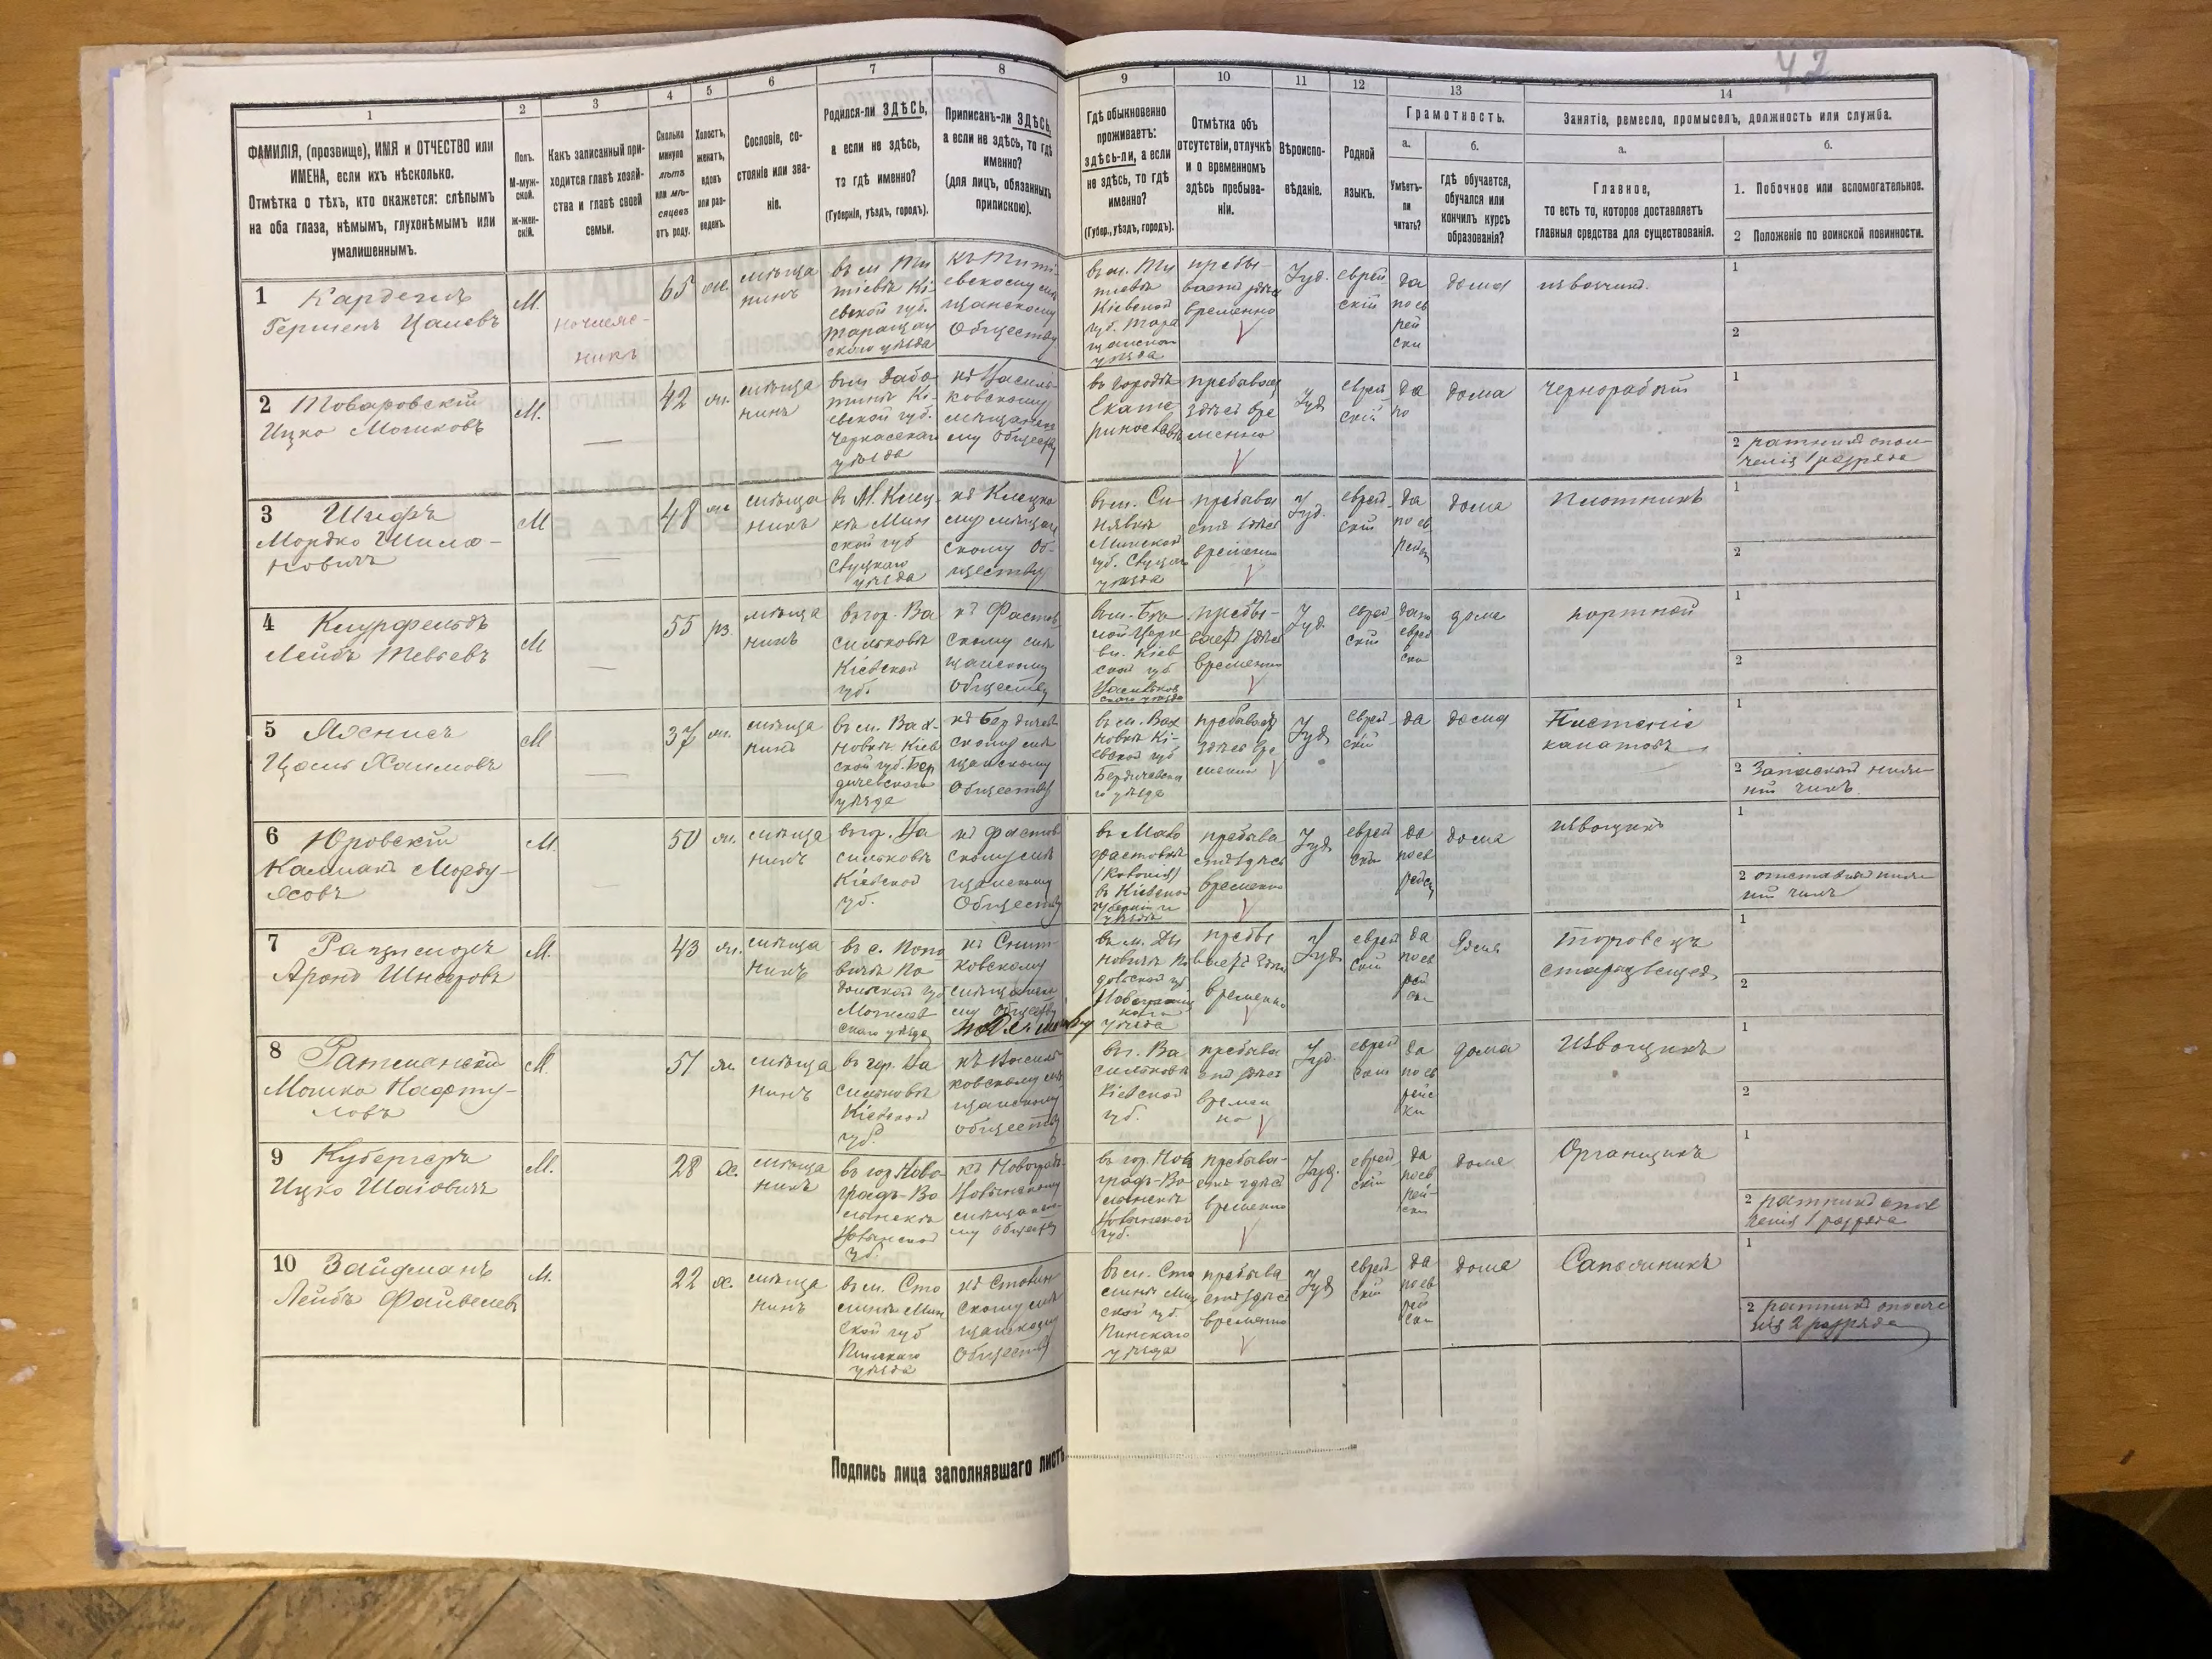 42
1
2
3
4
5
6
7
8
9
10
11
12
13
14
ФАМИЛІЯ, (прозвище), ИМЯ и ОТЧЕСТВО или
ИМЕНА, если ихъ нѣсколько.
Отмѣтка о тѣхъ, кто окажется: слѣпымъ
на оба глаза, нѣмымъ, глухонѣмымъ или
умалишеннымъ.
Полъ.
М-муж-
ской.
ж-жен-
скій.
Какъ записанный при-
ходится главѣ хозяй-
ства и главѣ своей
семьи.
Сколько
минуло
лѣтъ
или мѣ-
сяцевъ
отъ роду.
Холостъ,
женатъ,
вдовъ
или раз-
веденъ.
Сословіе, со-
стояніе или зва-
ніе.
Родился-ли ЗДѢСЬ,
а если не здѣсь,
то гдѣ именно?
(Губернія, уѣздъ, городъ).
Приписанъ-ли ЗДѢСЬ,
а если не здѣсь, то гдѣ
именно?
(для лицъ, обязанныхъ
припискою).
Гдѣ обыкновенно
проживаетъ:
здѣсь-ли, а если
не здѣсь, то гдѣ
именно?
(Губер., уѣздъ, городъ).
Отмѣтка объ
отсутствіи, отлучкѣ
и о временномъ
здѣсь пребыва-
ніи.
Вѣроиспо-
вѣданіе.
Родной
языкъ.
Грамотность.
а.
Умѣетъ-
ли
читать?
б.
гдѣ обучается,
обучался или
кончилъ курсъ
образованія?
Занятіе, ремесло, промыселъ, должность или служба.
а.
Главное,
то есть то, которое доставляетъ
главныя средства для существованія.
б.
1. Побочное или вспомогательное.
2 Положеніе по воинской повинности.
1
Гершенъ
М.
65
мѣща
нинъ
въ м. Ти
тіевѣ Кі
евской губ.
Таращан
скаго уѣзда
къ Титі-
евскому мѣ
щанскому
Обществу
въ м. Ти
тіевѣ
Кіевской
губ. Тара
щанскаго
уѣзда
пребы-
ваетъ здѣсь
временно
Іуд.
еврей
скій
да
по ев
рей
ски
дома
извощикъ
1
2
2 Товаровскій
Ицко Мошковъ
М.
42
мѣща
нинъ
евской губ.
Черкасскаго
уѣзда
къ Василь
ковскому
мѣщанско
му Обществу
въ городѣ
Екате
ринославѣ
пребываетъ
здѣсь вре
менно
Іуд
еврей
скій
да
по
дома
чернорабочій
1
2 ратникъ опол
ченія 1 разряда
3 Шифъ
Мордко Шимо-
новичъ
М
48
мѣща
нинъ
въ М. Клец
кѣ Мин
ской губ
Слуцкаго
уѣзда
къ Клецко
му мѣщан
скому Об-
ществу
въ м. Си
нявкѣ
Минской
губ. Слуцкаго
уѣзда
пребыва
етъ здѣсь
временно
Іуд.
еврей
скій
да
по ев
рейски
дома
Плотникъ
1
2
4
Лейбъ Тевьевъ
М
55
мѣща
нинъ
въ гор. Ва
сильковѣ
Кіевской
губ.
къ Фастов
скому мѣ
щанскому
Обществу
въ м. Бѣ
лой Церк
ви. Кіев
ской губ
Васильков
скаго уѣзда
пребы-
ваетъ здѣсь
временно
Іуд.
еврей
скій
да по
еврей
ски
дома
портной
1
2
5
Хаимовъ
М
37
мѣща
нинъ
въ м. Вах-
новкѣ Кіев
ской губ. Бер
дичевскаго
уѣзда
къ Бердичев
скому мѣ
щанскому
Обществу
въ м. Вах
новкѣ Кі-
евской губ
Бердичевска
го уѣзда
пребываетъ
здѣсь вре
менно
Іуд
еврей
скій
да
дома
канатовъ
1
2 Запасный ниж-
ній чинъ.
6 Юровскій
Калманъ Морду-
ховъ
М.
50
мѣща
нинъ
въ гор. Ва
сильковѣ
Кіевской
губ.
къ Фастов
скому мѣ
щанскому
Обществу
фастовкѣ
въ Кіевской
губерніи и
уѣздѣ
пребыва
етъ здѣсь
временно
Іуд
еврей
ски
да
по ев
рейск
дома
извощикъ
1
2 отставной ниж
ній чинъ
7
Аронъ
М.
43
мѣща
нинъ
дольской губ
Могилев
скаго уѣзда
къ Снит-
ковскому
мѣщанско
му обществу
дольской губ
уѣзда
пребы
ваетъ здѣсь
временно
Іуд.
еврей
скій
да
по ев
рей
ски
дома
торговецъ
1
2
8 Ратманскій
Мошко Нафту-
ловъ
М.
51
мѣща
нинъ
въ гор. Ва
сильковѣ
Кіевской
губ.
къ Василь-
ковскому мѣ
щанскому
обществу
въ г. Ва
сильковѣ
Кіевской
губ.
пребыва
етъ здѣсь
времен
но
Іуд.
еврей
ски
да
по ев
рейс
ки
дома
Извощикъ
1
2
9 Кубергеръ
Ицко
М.
28
х.
мѣща
нинъ
въ гор. Ново-
градъ-Во
лынскѣ
Волынской
губ.
къ Новоградъ-
Волынскому
мѣщанско
му обществу
въ гор. Ново
градъ-Во
лынскѣ
Волынской
губ.
пребыва-
етъ здѣсь
временно
Іуд.
еврей
скій
да
по ев
рей-
ски
дома
Органщикъ
1
2 ратникъ опол
ченія 1 разряда
10 Зайдманъ
Лейбъ Файвелевъ
М.
22
х.
мѣща
нинъ
въ м. Сто
линѣ Мин
ской губ
Пинскаго
уѣзда
къ Столин
скому мѣ
щанскому
Обществу
въ м. Сто
линѣ Мин
ской губ.
Пинскаго
уѣзда
пребыва
етъ здѣсь
временно
Іуд
еврей
скій
да
по ев
рей
ски
дома
Сапожникъ
1
2 ратникъ ополче
нія 2 разряда
Подпись лица заполнявшаго листъ